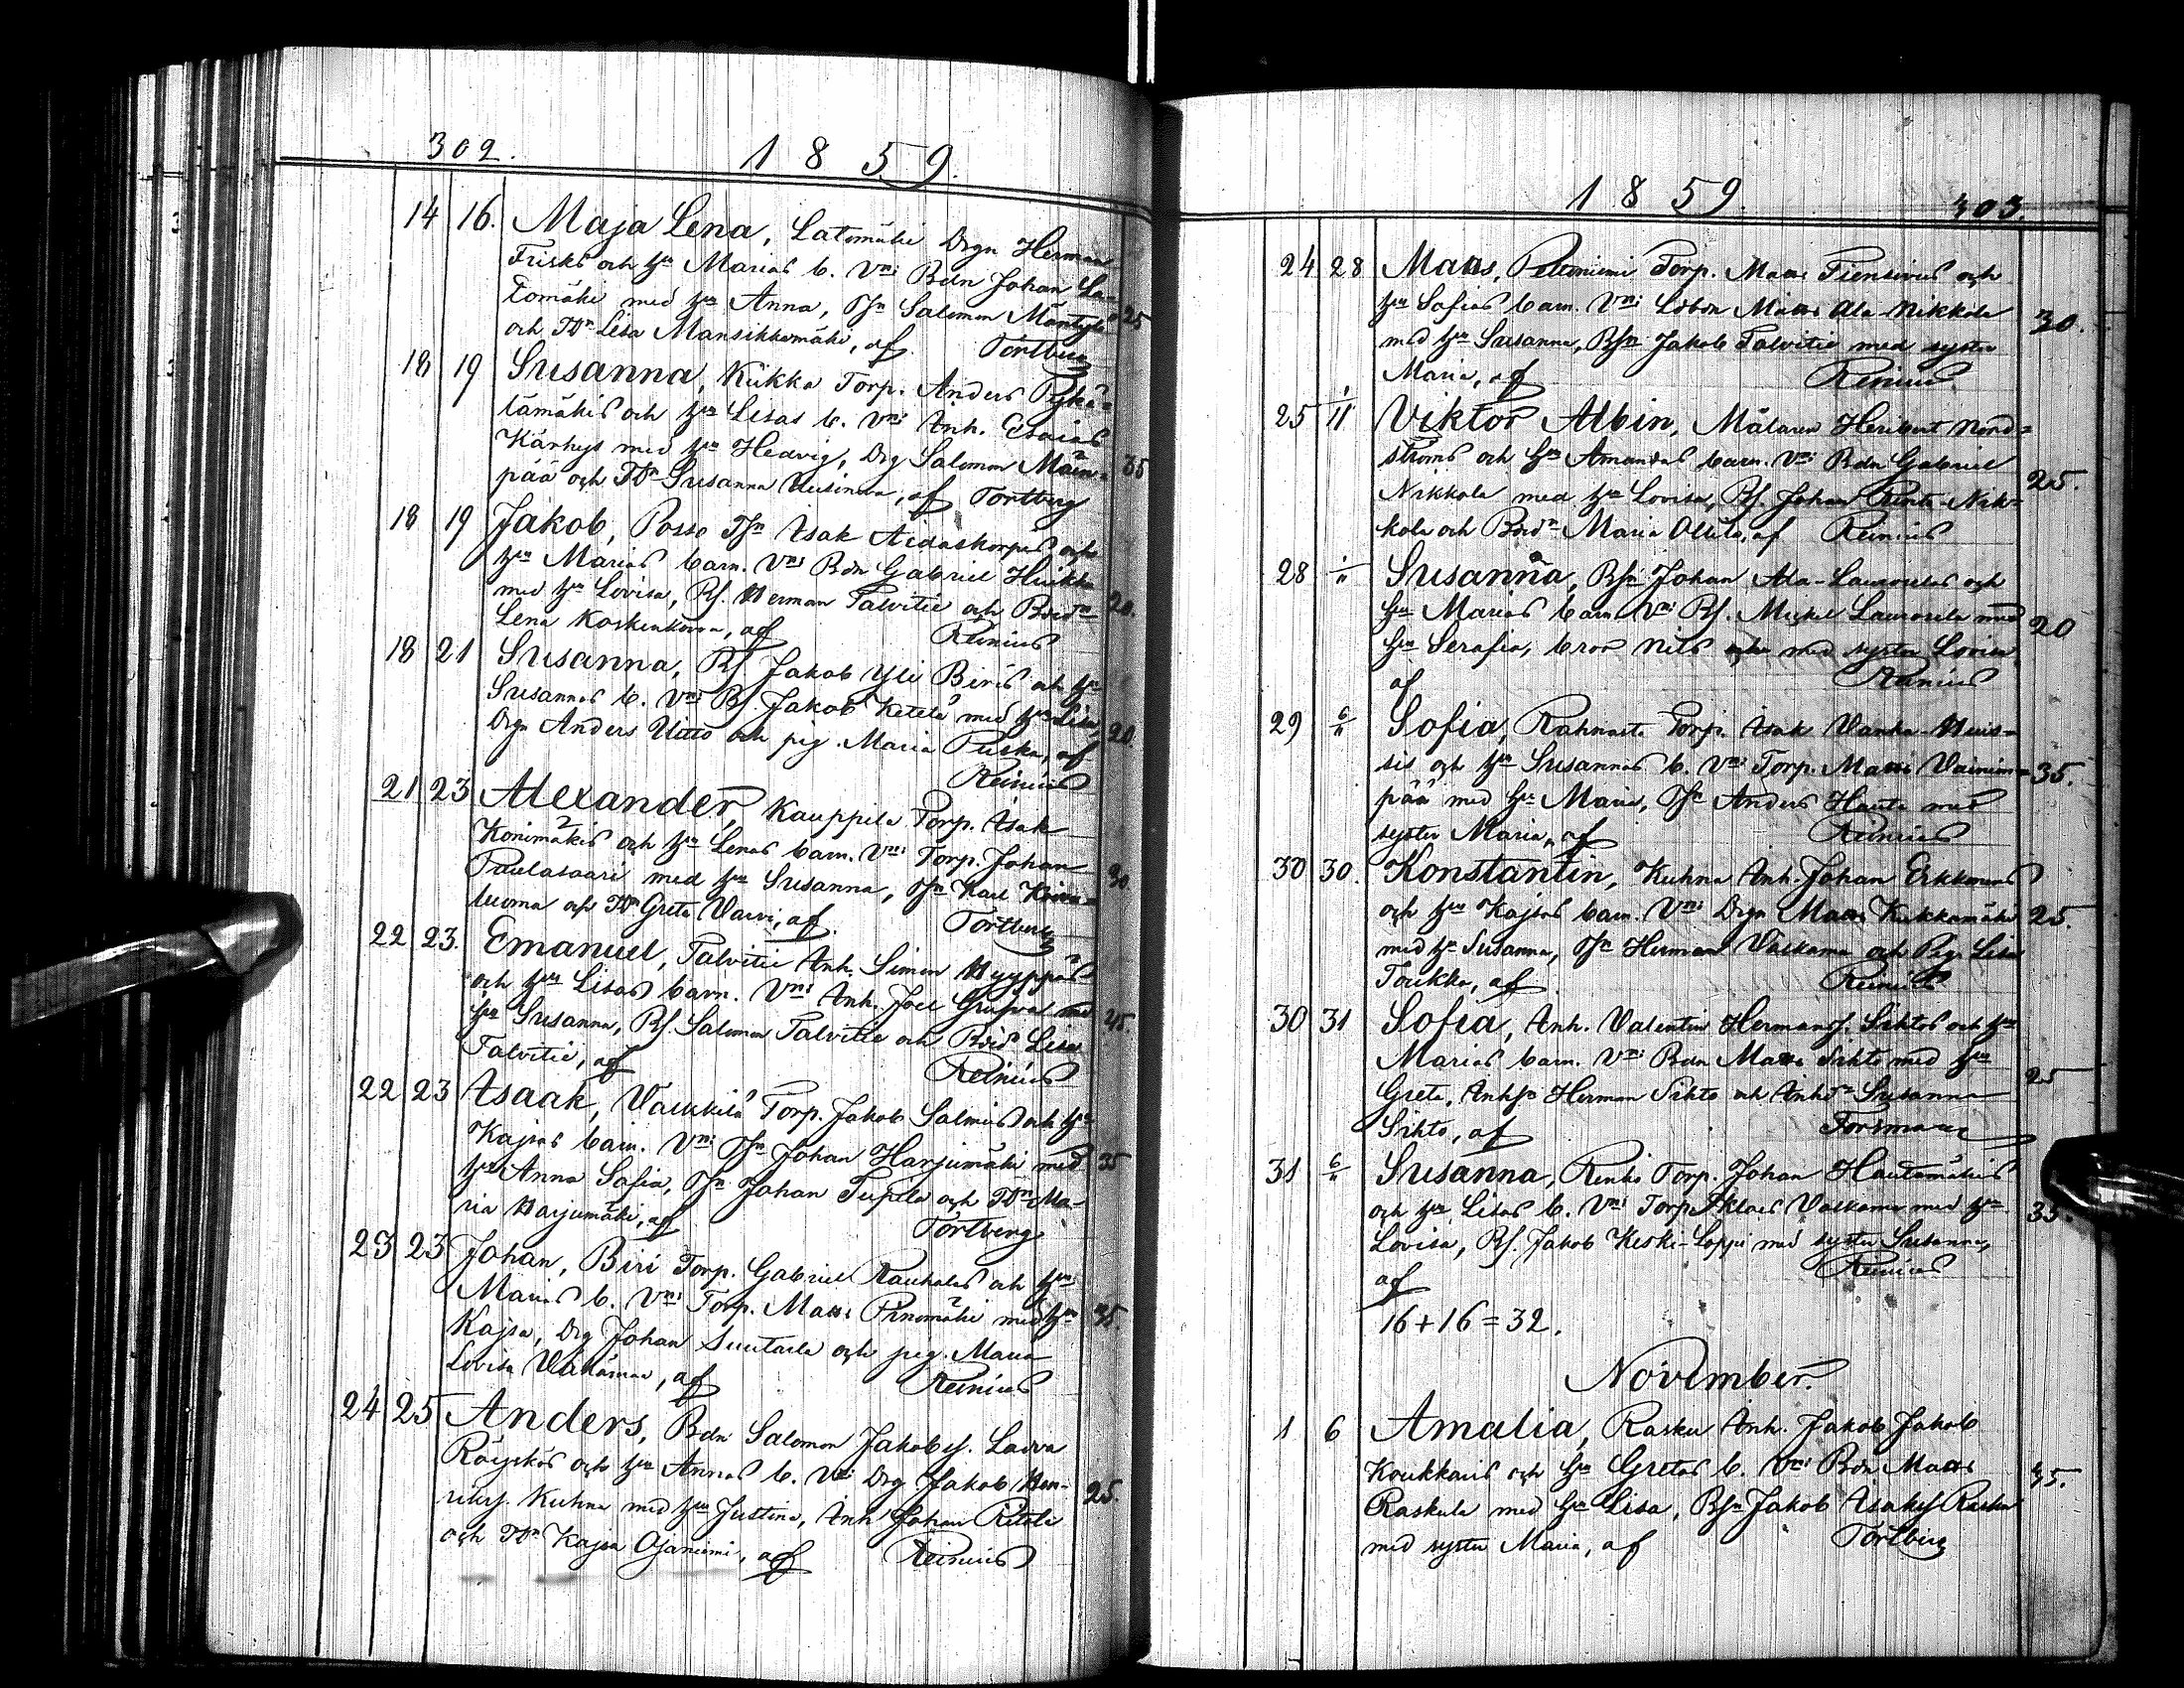 302.
1859.
14 16. Maja Lena, Latomäki Drgn Herman
Frisks och hu Marias b. Vni Bdn Johan La-
tomäki med hu Anna, Dsn Salomon Mäntylä 25
och Tdr Lisa Mansikkamäki, af Törtberg
18 19 Susanna, Kiikka Torp. Anders Pykä-
lämäkis och hu Lisas b. Vni Anh. Esaias
Kärhys med hu Hedvig, Drg Salomon 35
pää och Tdr Susanna Uusimaa, af Törtberg
18 19 Jakob, Posso Tsn Isak Aidaskorpis och
hu Marias barn. Vni Bdn Gabriel Huikku
med hu Lovisa, Bs. Herman Talvitie och Bdr 20.
Lena Koskenkorva, af Reinius
18 21 Susanna, Bs. Jakob Yli Biris och hu
Susannas b. Vni Bs. Jakob Ketelä med hu Lisa,
Drgn Anders Uitto och pig. Maria Puska, af 20.
Reinius
21 23 Alexander, Kauppila Torp. Isak
Konimäkis och hu Lenas barn. Vni Torp. Johan
Paulasaari med hu Susanna, Tsn Karl 30
luoma och Tdr Greta Varvi, af Törtberg
22 23. Emanuel, Talvitie Anh. Simon Hyyppäs
och hu Lisas barn. Vni Anh. Joel med
hu Susanna, Bs. Salomon Talvitie och Bdr Lisa 45.
Talvitie, af Reinius
22 23 Isaak, Vaikkilä Torp. Jakob Salmis och hu
Kajsas barn. Vni Tsn Johan Harjumäki med 35
hu Anna Sofia, Tsn Johan Tupila och Tdr Ma-
ria Harjumäki, af Törtberg
23 23 Johan, Biri Torp. Gabriel Rauhalas och hu
Marias b. Vni Torp. Matts Pinomäki med hu 45.
Kajsa, Drg Johan Suutarla och pig. Maria
Lovisa af Reinius
24 25 Anders, Bdn Salomon Jakobss. Laova
Röyskös och hu Annas b. Vni Drg Jakob Hen-
rikss. Kuhna med hu Justina, Anh Johan 25.
och Tdr Kajsa Ojaniemi, af Reinius
1859.
303.
24 28 Matts, Torp. Matts och
hu Sofias barn. Vni Matts Ala-Nikkola
med hu Susanna, Bsn Jakob Talvitie med syster 30.
Maria, af Reinius
25 1/11 Viktor Albin, Målaren Heribert Nord-
ströms och hu Amandas barn. Vni Bdn Gabriel
Nikkola med hu Lovisa, Bs. Johan Rinta-Nik- 25.
kola och Bdr Maria Ollila, af Reinius
28 1/11 Susanna, Bsn Johan Ala-Lauroselas och
hu Marias barn Vni Bs. Mickel Laurosela med
hu Serafia, bror Nils och med syster Lovisa, 20
af Reinius
29 6/11 Sofia, Rahnasto Torp. Isak Wanha-Huis-
sis och hu Susannas b. Vni Torp. Matts Vainion- 35.
pää med hu Maria, Tsn Anders Hauta med
syster Maria, af Reinius
30 30. Konstantin, Kuhna Anh. Johan Erkkonens
och hu Kajsas barn. Vni Drgn Matts Kukkamäki 25.
med hu Susanna, Tsn Herman Valkama och Pig. Lisa
Toukka, af Reinius
30 31 Sofia, Anh. Valentin Hermanss. Sihtos och hu
Marias barn. Vni Bdn Matts Sihto med hu
Greta, Anhsn Herman Sihto och Anhdr Susanna 25
Sihto, af Forsman
31 6/11 Susanna, Renko Torp. Johan Hautamäkis
och hu Lisas b. Vni Torp Valkama med hu
Lovisa, Bs. Jakob Keski-Loppi med syster Susanna, 35.
af Reinius
16+16=32.
November.
1 6 Amalia, Rasku Anh. Jakob Jakob
Koukkaris och hu Gretas b. Vni Bdn Matts
Raskula med hu Lisa, Bsn Jakob Isakss Rasku 45.
med syster Maria, af Törtberg